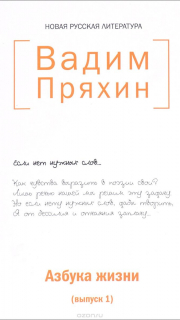 НОВАЯ РУССКАЯ ЛИТЕРАТУРА
Вадим
Пряхин
Если нет нужных слов...
Как чувства выразить в поэзии свои?
Лишь речью нашей мы решим эту задачу
Но если нету нужных слов, дабы творить,
Я от бессилия и отчаяния заплачу.
Азбука жизни
(выпуск 1)